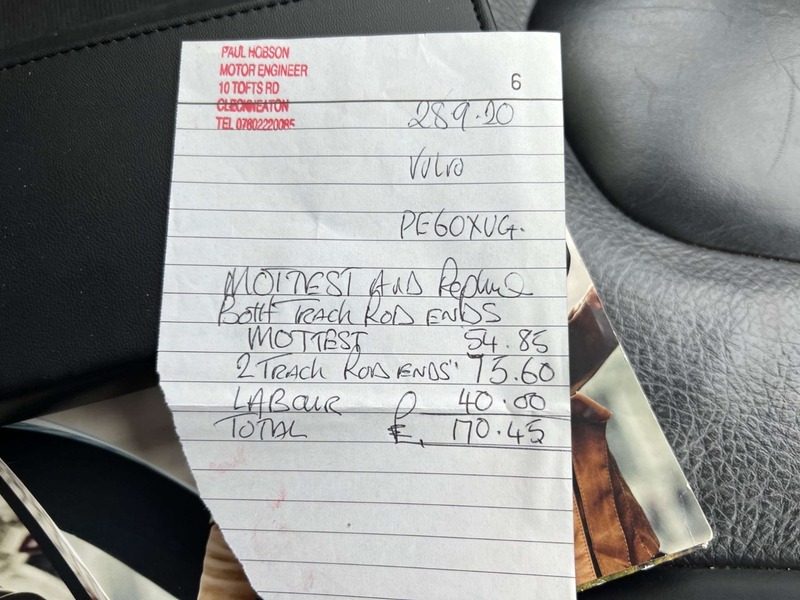 PAUL HOBSON
MOTOR ENGINEER
10 TOFTS RD
CLECKHEATON
TEL 07802220085
6
289.20
Vulvo
PE60XUG.
MOTTEST AND Replace
BOTH TRACK ROD ENDS
MOTTEST 54.85
2 TRACK ROD ENDS" 75.60
LABOUR 40.00
TOTAL £ 170.45